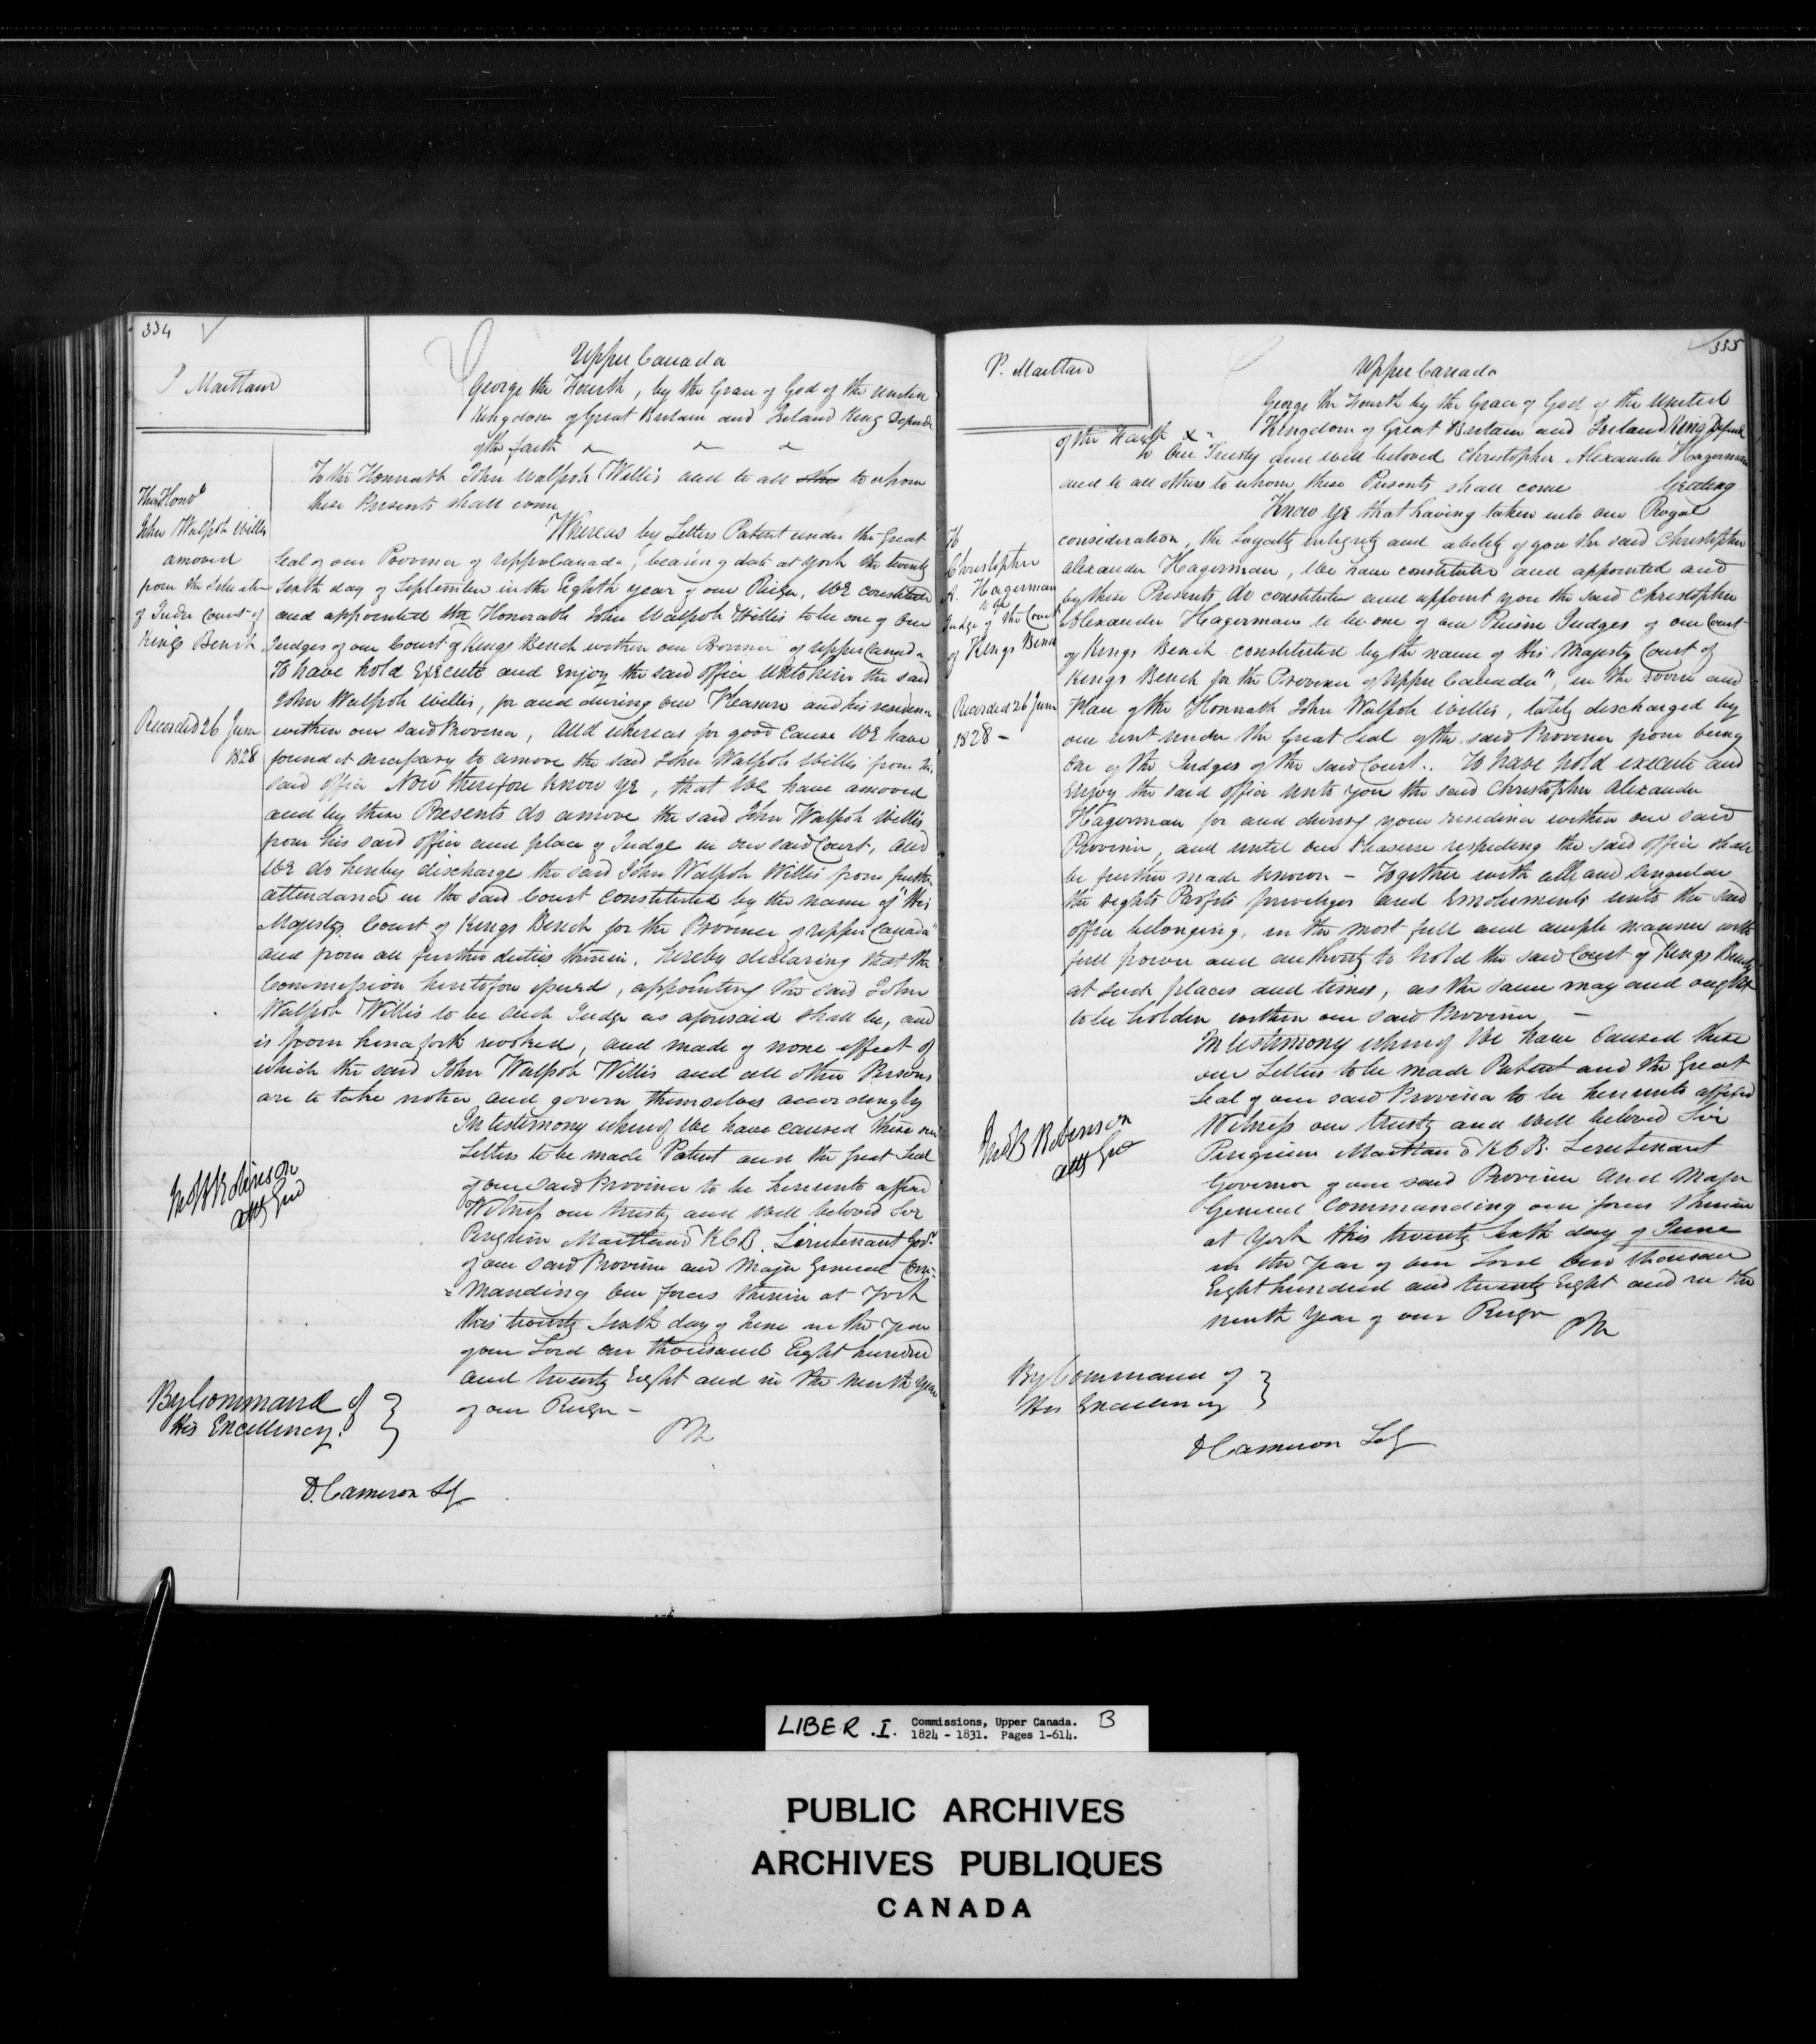 334
P Maitland
Upper Canada
George the Fourth, by the Grace of God of the United
Kingdom of Great Britain and Ireland King Defender
of the faith
To the Honorable John Walpole Willis and to all to whom
these Presents shall come
The Honble
John Walpole Willis
amoved
from the
of Judge Court of
Kings Bench
Recorded 26 June
1828
Whereas by Letters Patent under the Great
Seal of our Province of Upper Canada, bearing date at York the twenty
Sixth day of September in the Eighth year of our Reign, WE constituted
and appointed the Honorable John Walpole Willis to be one of our
Judges of our Court of Kings Bench within our Province of Upper Canada
To have hold Execute and Enjoy the said Office unto him the said
John Walpole Willis, for and during our Pleasure and his residence
within our said Province, And whereas for good Cause WE have
found it necessary to amove the said John Walpole Willis from his
said office Now therefore Know YE, that WE have amoved
and by these Presents do amove the said John Walpole Willis
from his said office and place of Judge in our said Court, and
WE do hereby discharge the said John Walpole Willis from further
attendance in the said Court constituted by the name of "His
Majestys Court of Kings Bench for the Province of Upper Canada"
and from all further duties therein. hereby declaring that the
Commission heretofore issued, appointing the said John
Walpole Willis to be such Judge as aforesaid shall be, and
is from henceforth revoked, and made of none effect of
which the said John Walpole Willis and all other Persons
are to take notice and govern themselves accordingly
In testimony whereof We have caused these our
Letters to be made Patent and the Great Seal
of our said Province to be hereunto affixed
Witness our trusty and well beloved Sir
Peregrine Maitland K C B. Lieutenant Govr.
of our said Province and Major General Com-
=manding our forces therein at York
this twenty Sixth day of June in the year
of our Lord one thousand Eight hundred
and twenty Eight and in the ninth year
of our Reign –
P M
Jno B Robinson
Atty Genl
By Command of
His Excellency.
D. Cameron Sy
335
P. Maitland
Upper Canada
George the Fourth by the Grace of God of the United
Kingdom of Great Britain and Ireland King Defender
of the Faith &c
To Our Trusty and well beloved Christopher Alexander Hagerman
and to all others to whom these Presents shall come Greeting
Know YE that having taken into our Royal
consideration, the Loyalty integrity and ability of you the said Christopher
Alexander Hagerman, We have constituted and appointed and
by these Presents do constitute and appoint you the said Christopher
Alexander Hagerman to be one of our Puisne Judges of our Court
of Kings Bench constituted by the name of His Majestys Court of
Kings Bench for the Province of Upper Canada", in the room and
Place of the Honorable John Walpole Willis, lately discharged by
our writ under the Great Seal of the said Province from being
One of the Judges of the said Court. To have hold execute and
Enjoy the said office unto you the said Christopher Alexander
Hagerman for and during your residence within our said
Province, and until our Pleasure respecting the said office shall
be further made known – Together with all and Singular
the rights Profits priveliges and Emoluments unto the said
office belonging, in the most full and ample manner with
full power and authority to hold the said Court of Kings Bench
at such places and times, as the same may and ought
to be holden within our said Province –
Christopher
A. Hagerman
to be
Judge of the Court
of Kings Bench
Recorded 26 June
1828 –
In testimony whereof We have Caused these
our Letters to be made Patent and the Great
Seal of our said Province to be hereunto affixed
Witness our trusty and well beloved Sir
Peregrine Maitland K C B. Lieutenant
Governor of our said Province and Major
General Commanding our forces therein
at York this twenty sixth day of June
in the Year of our Lord One thousand
Eight hundred and twenty Eight and in the
ninth Year of our Reign
P M
Jno B Robinson
Atty Genl
By Command of
His Excellency
D Cameron Sy
LIBER .I. Commissions, Upper Canada. B
1824 - 1831. Pages 1-614.
PUBLIC ARCHIVES
ARCHIVES PUBLIQUES
CANADA